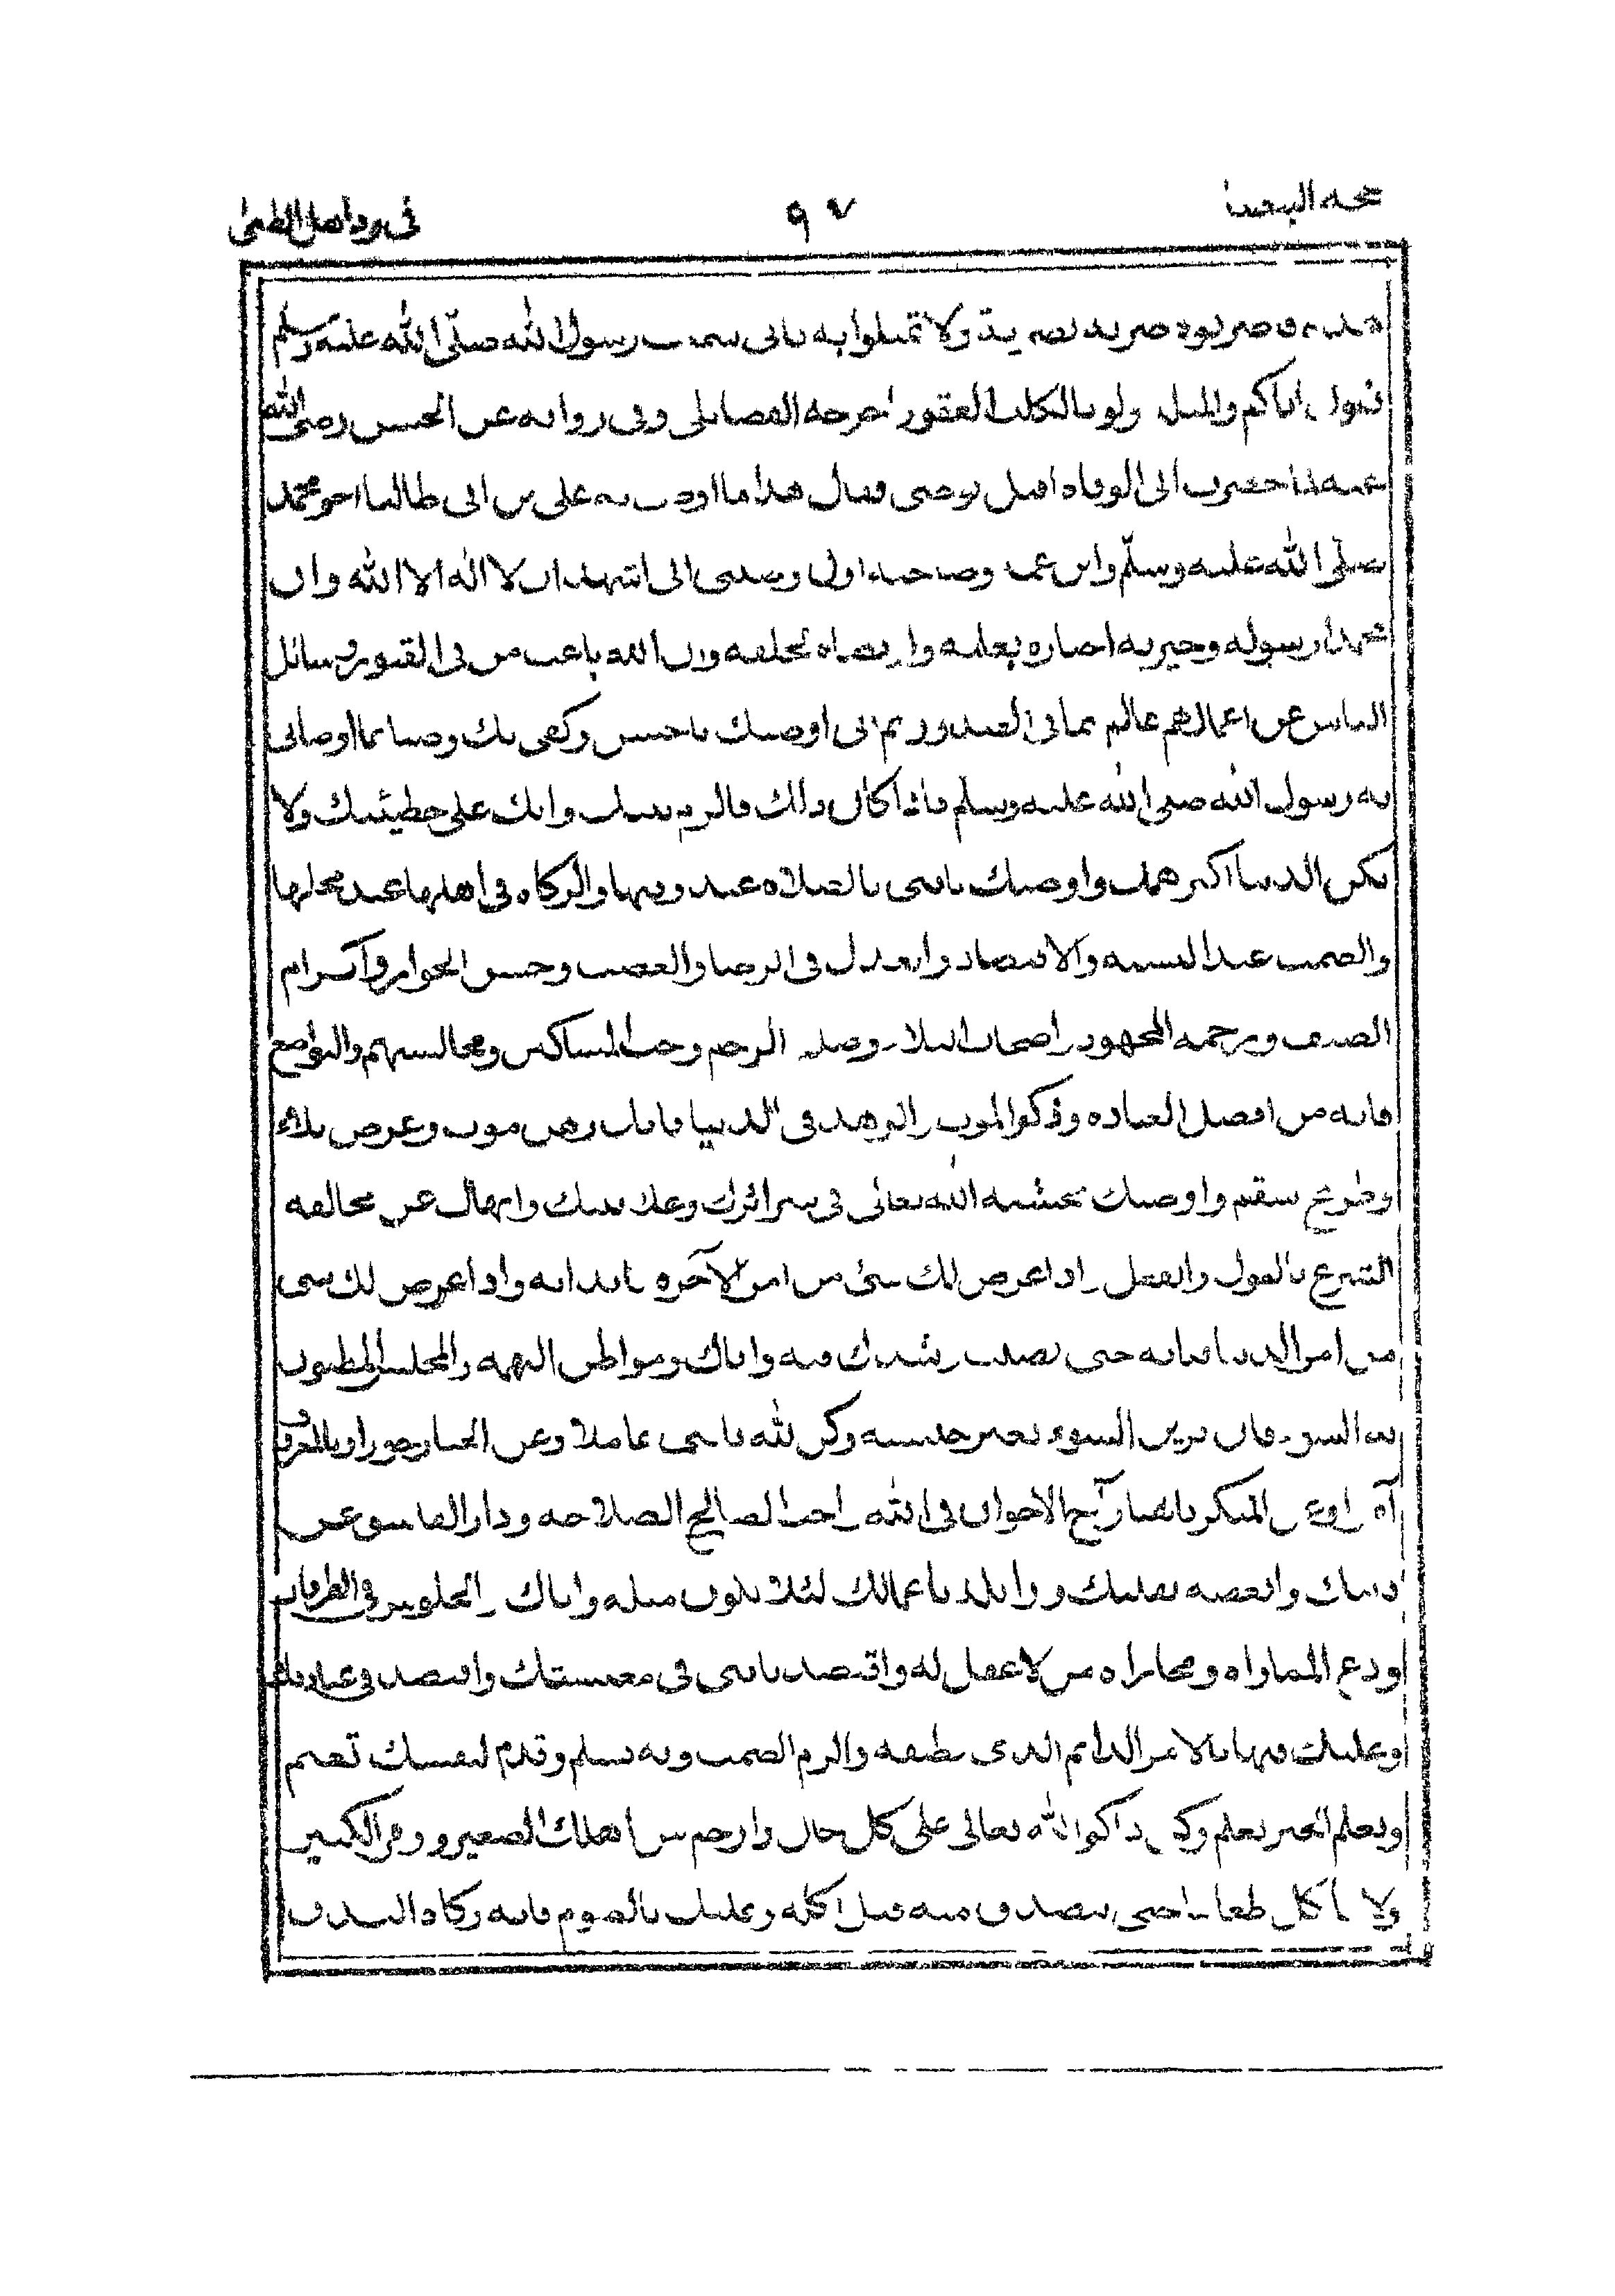 تحفة البيضا ٩٧ في رد اهل الطغى
هذه فاضربوه ضربة بضربة ولا تمثلوا به فاني سمعت رسول الله صلّى الله عليه وسلم
يقول اياكم والمثلة ولو بالكلب العقور اخرجه الفضايلي وفي رواية عن الحسن رضى الله
عنه لما حضرت ابي الوفاة اقبل يوصي فقال هذا ما اوصى به علي بن ابي طالب اخو محمد
صلّى الله عليه وسلّم وابن عمه وصاحبه اول وصيتي اني اشهد ان لا اله الا الله وان
محمدا رسوله وخيرته اختاره بعلمه وارتضاه لخلقه وان الله باعث من في القبور وسائل
الناس عن اعمالهم عالم بما في الصدور ثم اني اوصيك يا حسن وكفى بك وصيا بما اوصاني
به رسول الله صلى الله عليه وسلم فاذا كان ذلك فالزم بيتك وابك على خطيئتك ولا
تكن الدنيا اكبر همك واوصيك يا بني بالصلاة عند وقتها والزكاة في اهلها عند محلها
والصمت عند الشبهة والاقتصاد والعدل في الرضا والغضب وحسن الجوار واكرام
الضيف ورحمة المجهود واصحاب البلاء وصلة الرحم وحب المساكين ومجالستهم والتواضع
فانه من افضل العبادة وذكر الموت والزهد في الدنيا فانك رهن موت وعرض بلاء
وطريح سقم واوصيك بخشية الله تعالى في سرائرك وعلانيتك وانهاك عن مخالفة
الشرع بالقول والفعل واذا عرض لك شئ من امر الآخرة فابدا به واذا عرض لك شي
من امر الدنيا فتانه حتى تصيب رشدك فيه واياك ومواطن التهمة والمجلس المظنون
به السوء فان قرين السوء يغير جليسه وكن لله يا بني عاملا وعن الخنا زجورا وبالمعروف
آمرا وعن المنكر ناهيا وآخ الاخوان في الله واحب الصالح لصلاحه ودار الفاسق عن
دينك وابغضه بقلبك وزايله باعمالك لئلا تكون مثله واياك والجلوس في الطرقات
ودع المماراة ومجاراة من لا عقل له واقتصد يا بني في معيشتك واقتصد في عبادتك
وعليك فيها بالامر الدايم الذي تطيقه والزم الصمت وبه تسلم وقدم لنفسك تغنم
وتعلم الخير تعلم وكن ذاكرا لله تعالى على كل حال وارحم من اهلك الصغير ووقر الكبير
ولا تأكل طعاما حتى تتصدق منه قبل اكله وعليك بالصوم فانه زكاة البدن